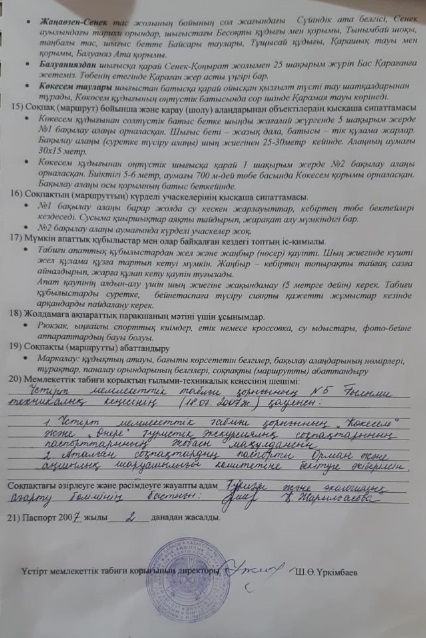 • Жаңавзен-Сенек тас жолының бойының сол жағындағы Сүйіндік ата белгісі, Сенек
ауылындағы тарихи орындар, шығыстағы Бесоқты құдығы мен қорымы, Тынымбай шоқы,
таңбалы тас, шығыс бетте Байсары таулары, Тұщысай құдығы, Қарашық тауы мен
қорымы, Балуаниз Ата қорымы.
• Балуанияздан шығысқа қарай Сенек-Қоңырат жолымен 25 шақырым жүріп Бас Қараганға
жетеміз. Төбенің етегінде Қараган жер асты үңгірі бар.
• Көкесем таулары шығыстан батысқа қарай ойысқан қызғылт түсті тау шатқалдарынан
тұрады, Көкесем құдығының оңтүстік батысында сор ішінде Қарамая тауы көрінеді.
15) Соқпақ (маршрут) бойынша және қарау (шолу) алаңдарынан объектілерлің қысқаша сипаттамасы
• Көкесем құдығынан солтүстік батыс бетке шыңды жағалай жүргенде 5 шақырым жерде
№1 бақылау алаңы орналасқан. Шығыс беті – жазық дала, батысы – тік құлама жарлар.
Бақылау алаңы (суретке түсіру алаңы) шың жиегінен 25-30метр кейінде. Алаңның аумағы
30х15 метр.
• Көкесем құдығынан оңтүстік шығысқа қарай 1 шақырым жерде №2 бақылау алаңы
орналасқан. Биіктігі 5-6 метр, аумағы 700 м-дей төбе басында Көкесем қорымы орналасқан.
Бақылау алаңы осы қорымның батыс беткейінде.
16) Соқпақтың (маршруттың) күрделі учаскелерінің қысқаша сипаттамасы.
• №1 бақылау алаңы барар жолда су кескен жарлауыттар, кебіртең төбе бектейлері
кездеседі. Сусыма қиыршықтар аяқты тайдырып, жарақат алу мүмкіндігі бар.
• №2 бақылау алаңы аумағында күрделі учаскелер жоқ.
17) Мүмкін апаттық құбылыстар мен олар байқалған кездегі топтың іс-қимылы.
• Табиғи апаттық құбылыстардан жел және жаңбыр (нөсер) қауіпті. Шың жиегінде күшті
жел құлама құзға тартып кетуі мүмкін. Жаңбыр – кебіртең топырақты тайғақ сазға
айналдырып, жарға құлап кету қаупін туғызады.
Апат қаупінің алдын-алу үшін шың жиегіне жақындамау (5 метрге дейін) керек. Табиғи
құбылыстарды суретке, бейнетаспаға түсіру сияқты қажетті жұмыстар кезінде
арқандарды пайдалану керек.
18) Жолдамаға ақпараттық парақшаның мәтіні үшін ұсынымдар.
• Рюкзак, ыңғайлы спорттық киімдер, етік немесе кроссовка, су ыдыстары, фото-бейне
аппараттардың бауы болуы.
19) Соқпақты (маршрутты) абаттандыру
• Маркалау: құдықтың атауы, бағыты көрсететін белгілер, бақылау алаңдарының нөмірлері,
тұрақтар, паналау орындарының белгілері, соқпақты (маршрутты) абаттандыру
20) Мемлекеттік табиғи қорықтың ғылыми-техникалық кеңесінің шешімі:
Үстірт мемлекеттік табиғи қорығының №5 Ғылыми
техникалық кеңесінің (18.07.2007ж.) қаулысы:
1. Үстірт мемлекеттік табиғи қорығының "Көкесем"
және "Онере" туристік экскурсиялық соқпақтарының
паспорттарының жобасы мақұлдансын.
2. Аталған соқпақтардың паспорты Орман және
аңшылық шаруашылығы комитетіне бекітуге жіберілсін
Соқпақтағы әзірлеуге және рәсімдеуге жауапты адам Туризм және экологиялық
ағарту бөлімінің бастығы:
21) Паспорт 2007 жылы 2 данадан жасалды.
Үстірт мемлекеттік табиғи қорығының директоры Ш.Ө.Үркімбаев